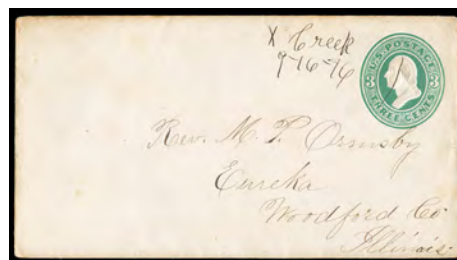 X Creek
9-16-76
U.S. POSTAGE
3 3
THREE CENTS
Rev. M. P. Ormsby
Eureka
Woodford Co
Illinois